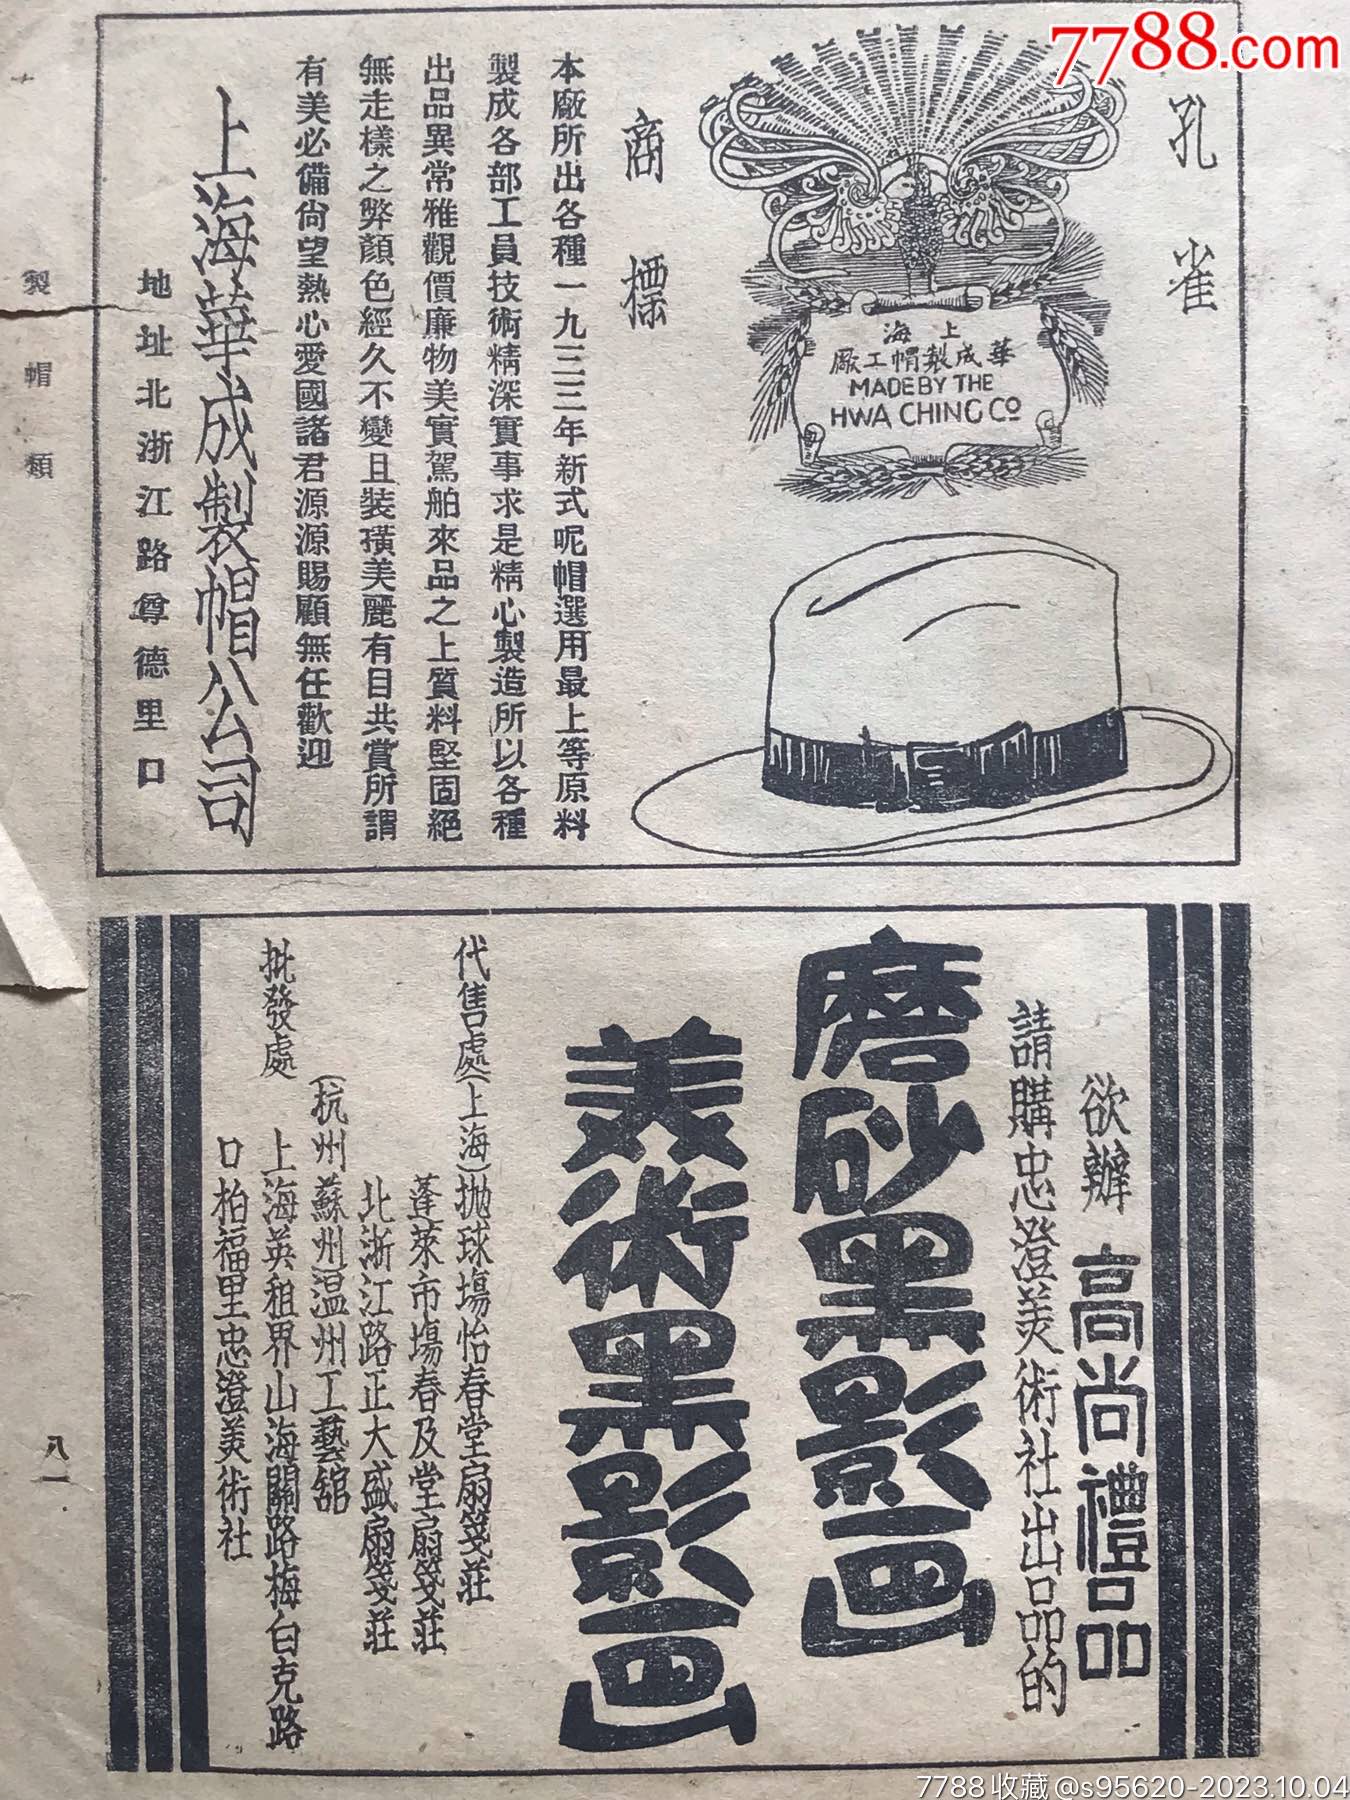 7788.com
孔雀
商標
海上
廠工帽製成華
MADE BY THE
HWA CHING CO
本廠所出各種一九三三年新式呢帽選用最上等原料
製成各部工員技術精深實事求是精心製造所以各種
出品異常雅觀價廉物美實駕舶來品之上質料堅固絕
無走樣之弊顏色經久不變且裝璜美麗有目共賞所謂
有美必備尙望熱心愛國諸君源源賜顧無任歡迎
上海華成製帽公司
地址北浙江路尊德里口
製帽類
欲辦高尚禮品
請購忠澄美術社出品的
磨砂黑影画
美術黑影画
代售處(上海)拋球場怡春堂扇箋莊
蓬萊市場春及堂扇箋莊
北浙江路正大盛扇箋莊
(杭州蘇州)温州工藝舘
批發處 上海英租界山海關路梅白克路
口柏福里忠澄美術社
八一
7788收藏@s95620-2023.10.04